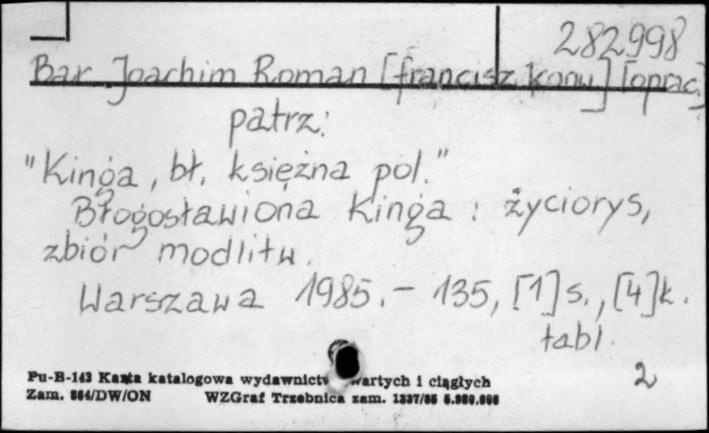 282998
Bar Joachim Roman [francisz. konw.] [oprac.]
patrz:
"Kinga, bł. księżna pol."
Błogosławiona Kinga : życiorys,
zbiór modlitw.
Warszawa 1985. - 135, [1] s., [4] k.
tabl.
2
Pu-B-143 Karta katalogowa wydawnictw zwartych i ciągłych
Zam. 864/DW/ON WZGraf Trzebnica zam. 1337/85